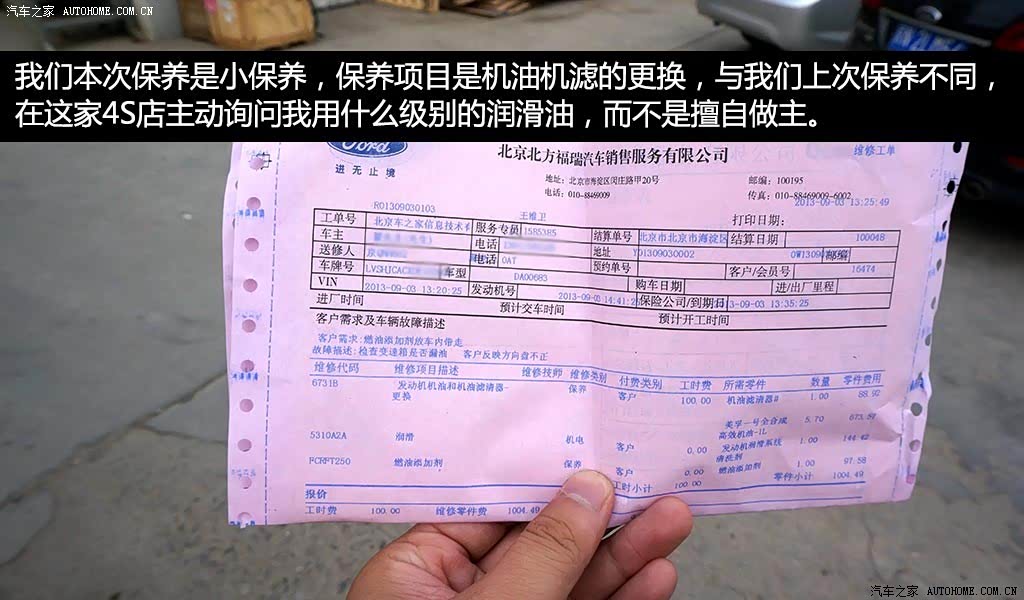 汽车之家 AUTOHOME.COM.CN
我们本次保养是小保养，保养项目是机油机滤的更换，与我们上次保养不同，
在这家4S店主动询问我用什么级别的润滑油，而不是擅自做主。
Ford
进无止境
北京北方福瑞汽车销售服务有限公司
维修工单
地址：北京市海淀区闵庄路甲20号
邮编：100195
电话：010-88469009
传真：010-88469009-6002
2013-09-03 13:25:49
打印日期：
RO1309030103
王维卫
工单号
北京车之家信息技术有
服务专员
1585385
结算单号
北京市北京市海淀区
结算日期
100048
车主
电话
地址
YO1309030002
邮编
送修人
电话
0AT
预约单号
客户/会员号
16474
车牌号
LVSHJCAC
车型
DA00683
购车日期
进/出厂里程
VIN
2013-09-03 13:20:25
发动机号
2013-09-03 14:41:2
保险公司/到期日
13-09-03 13:35:25
进厂时间
预计交车时间
预计开工时间
客户需求及车辆故障描述
客户需求:燃油添加剂放车内带走
故障描述:检查变速箱是否漏油 客户反映方向盘不正
维修代码 维修项目描述 维修技师 维修类别 付费类别 工时费 所需零件 数量 零件费用
6731B 发动机机油和机油滤清器- 保养 客户 100.00 机油滤清器 1.00 88.92
更换
美孚一号全合成 5.70 673.57
高效机油-1L
5310A2A 润滑 机电 客户 0.00 发动机润滑系统 1.00 144.42
清洗剂
FCRFT250 燃油添加剂 保养 客户 0.00 燃油添加剂 1.00 97.58
工时小计 100.00 零件小计 1004.49
报价
工时费 100.00 维修零件费 1004.49
汽车之家 AUTOHOME.COM.CN